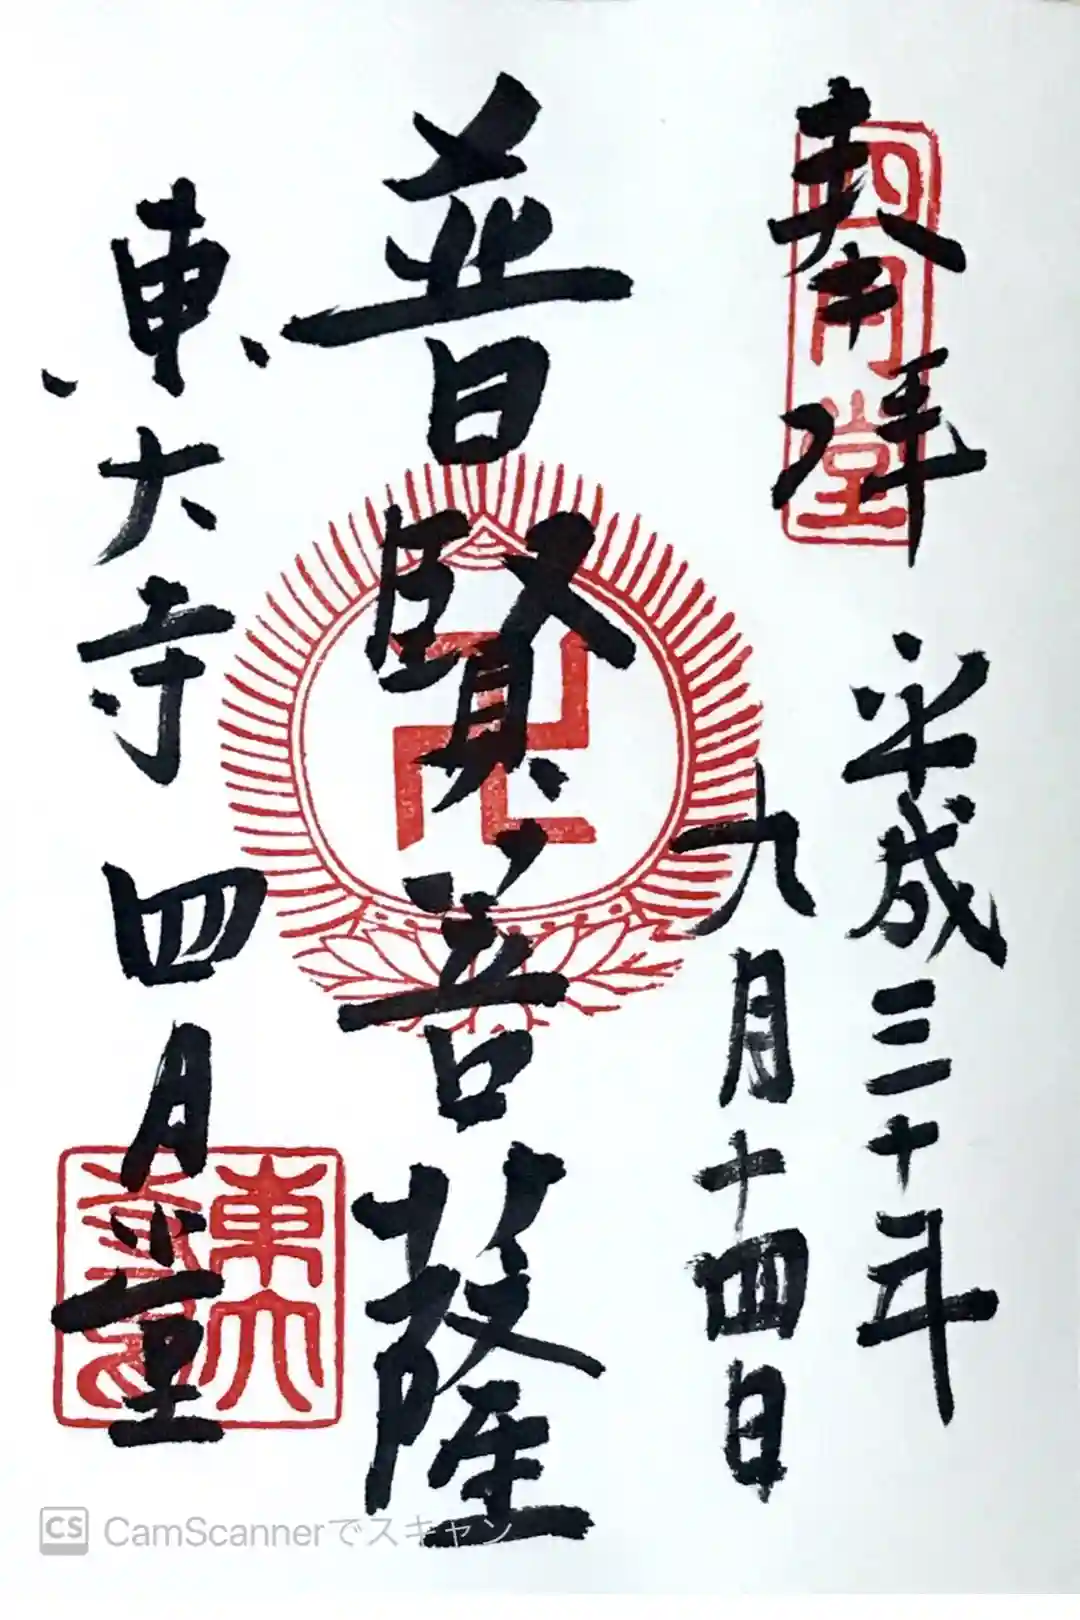 奉拝
平成三十年
九月十四日
普賢菩薩
東大寺
四月堂
四月堂
東大
CamScannerでスキャン